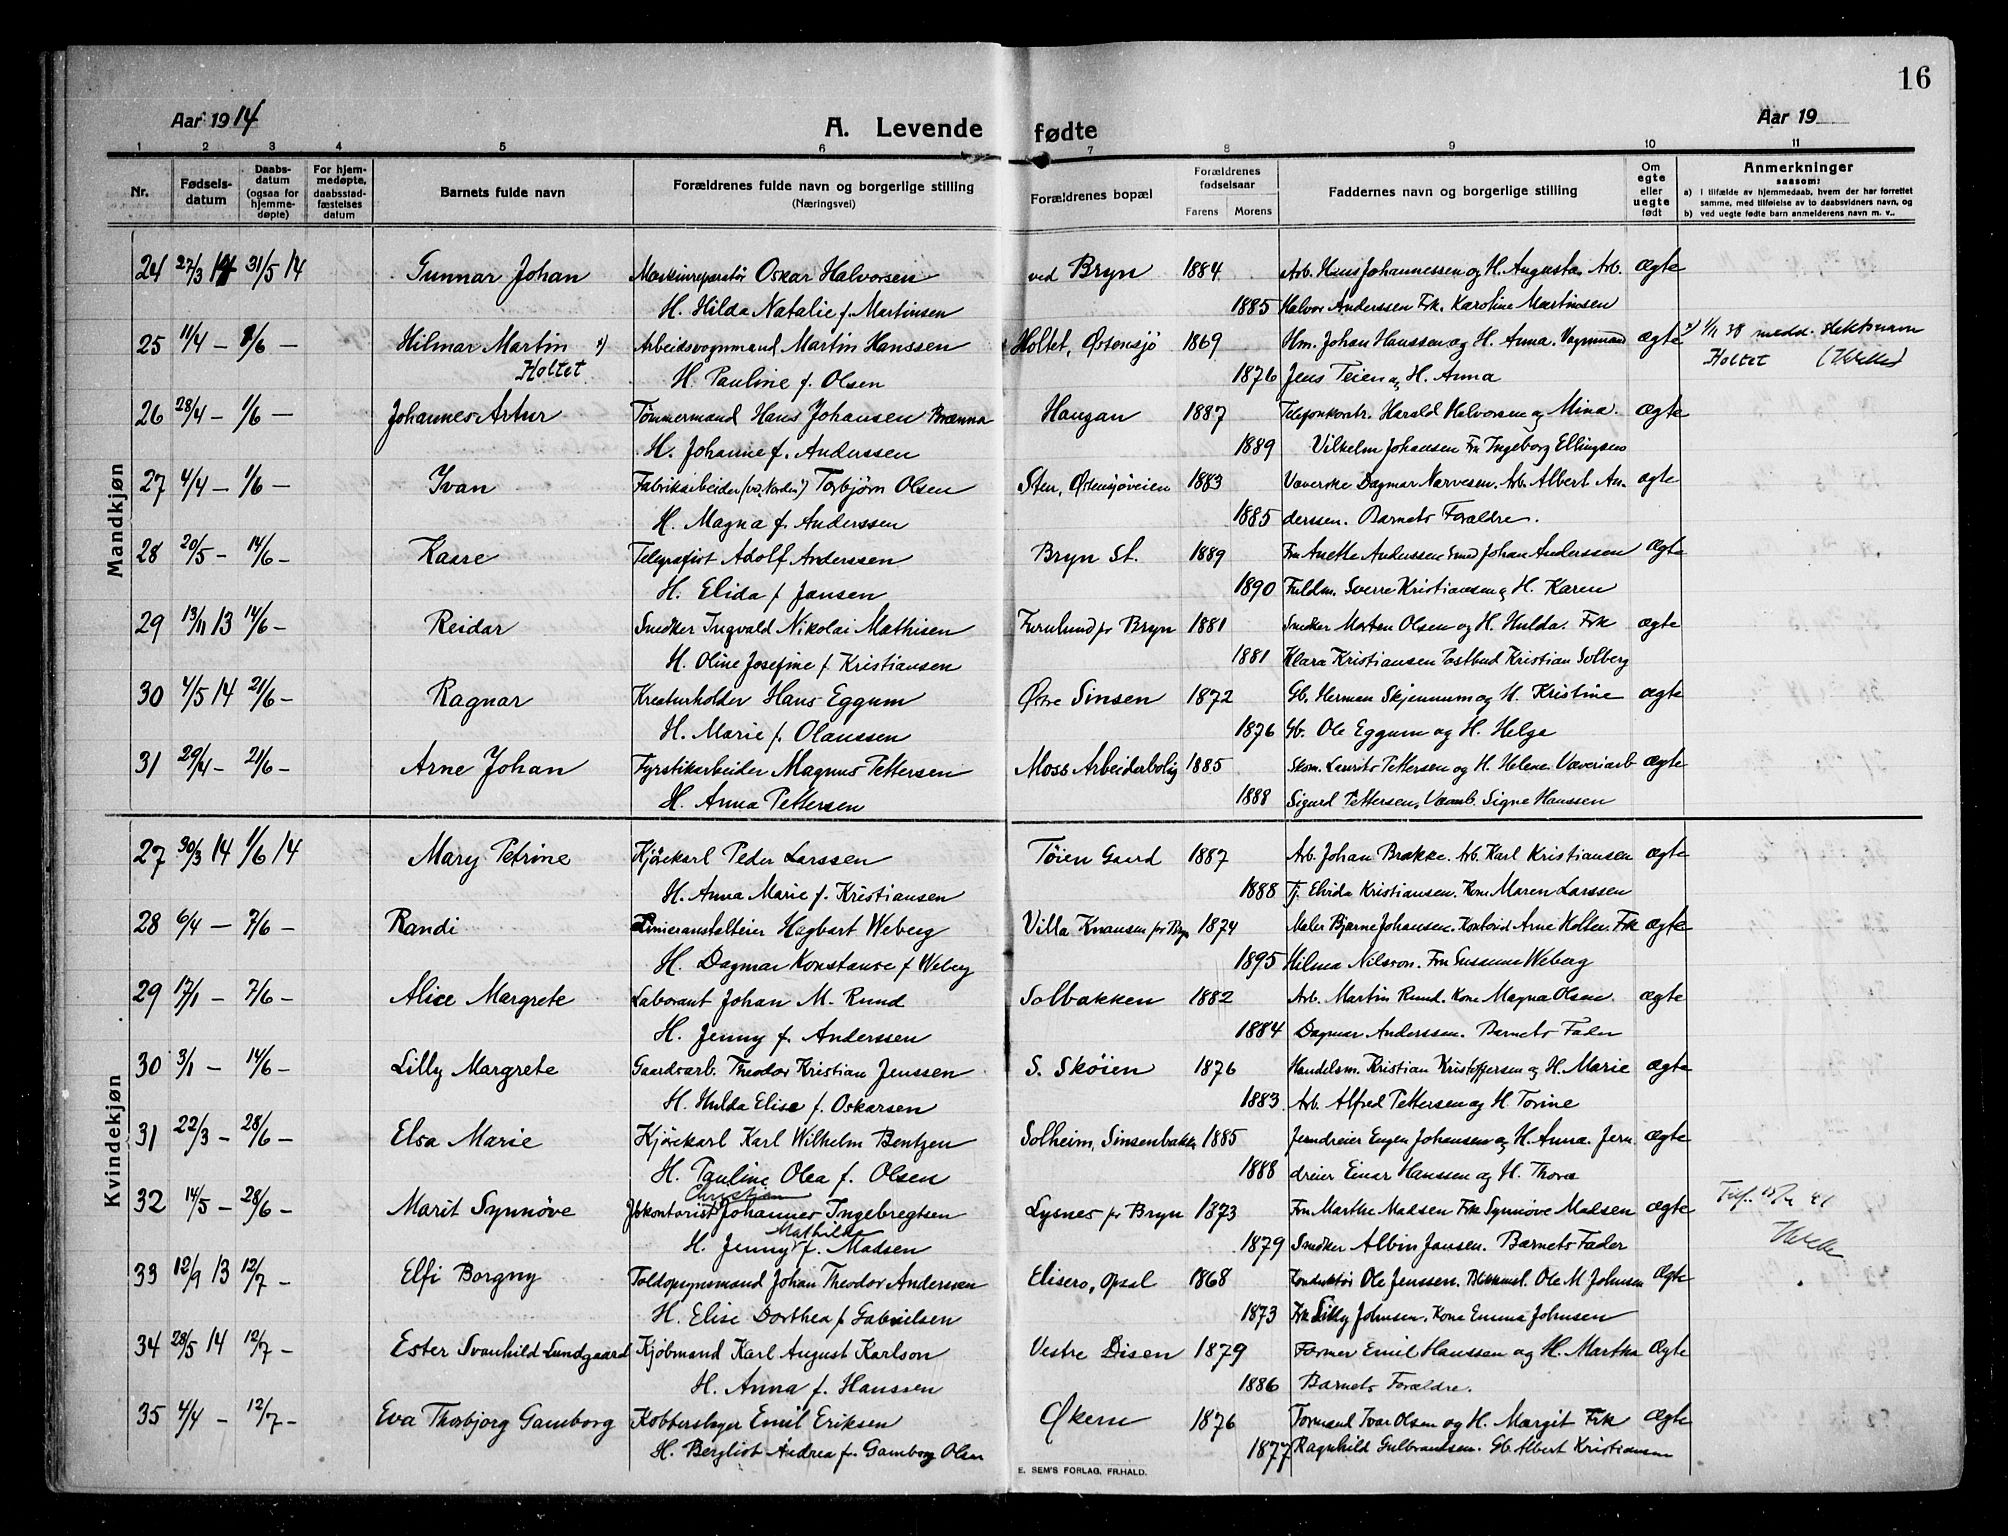 16
Aar 1914
A. Levende fødte
Aar 19
1 2 3 4 5 6 7 8 9 10 11
Nr.
Fødsels-
datum
Daabs-
datum
(ogsaa for
hjemme-
døpte)
For hjem-
medøpte,
daabsstad-
fæstelses
datum
Barnets fulde navn
Forældrenes fulde navn og borgerlige stilling
(Næringsvei)
Forældrenes bopæl
Forældrenes
fødselsaar
Farens Morens
Faddernes navn og borgerlige stilling
Om
egte
eller
uegte
født
Anmerkninger
saasom:
a) i tilfælde av hjemmedaab, hvem der har forrettet
samme, med tilføielse av to daabsvidners navn, og
b) ved uegte fødte barn anmelderens navn m. v..
Mandkjøn
24 27/3 14 31/5 14 Gunnar Johan Maskinreparatør Oskar Halvorsen ved Bryn 1884 Arb. Hans Johannessen og H. Augusta. Arb. ægte
H. Hilda Natalie f. Martinsen 1885 Halvor Anderssen Frk. Karoline Martinsen
25 11/4 — 1/6 — Hilmar Martin Arbeidsvognmand Martin Hanssen Holtet, Østensjø 1869 Hm. Johan Hanssen og H. Anna. Vognmand ægte 1/11 38 medd. slektsnavn
Holtet H. Pauline f. Olsen 1876 Jens Teien og H. Anna Holtet
26 28/4 — 1/6 — Johannes Artur Tømmermand Hans Johansen Brænna Haugan 1887 Harald Halvorsen og Mina. ægte
H. Johanne f. Anderssen 1889 Vilhelm Johansen Fru Ingeborg Ellingsen
27 4/4 — 1/6 — Ivan Fabrikarbeider Torbjørn Olsen Sten, Østensjøveien 1883 Væverske Dagmar Narvesen. Arb. Albert An- ægte
H. Magna f. Anderssen 1885 derssen. Barnets Forældre.
28 20/5 — 14/6 — Kaare Telegrafist Adolf Anderssen Bryn St. 1889 Fru Anette Anderssen Smed Johan Anderssen ægte
H. Elida f. Jansen 1890 Fuldm. Sverre Kristiansen og H. Karen
29 13/11 13 14/6 — Reidar Snedker Ingvald Nikolai Mathisen Furulund pr Bryn 1881 Snedker Morten Olsen og H. Hulda. Frk ægte
H. Oline Josefine f. Kristiansen 1881 Klara Kristiansen Postbud Kristian Solberg
30 4/5 14 21/6 — Ragnar Kreaturholder Hans Eggum Østre Sinsen 1872 Gb. Herman Skjennum og H. Kristine ægte
H. Marie f. Olaussen 1876 Gb. Ole Eggum og H. Helga
31 29/4 — 21/6 — Arne Johan Fyrstikarbeider Magnus Pettersen Moss Arbeiderbolig 1885 Skom. Laurits Pettersen og H. Helene. Væveriarb ægte
H. Anna Pettersen 1888 Sigurd Pettersen, Signe Hanssen
Kvindekjøn
27 30/3 14 1/6 14 Mary Petrine Kjørekarl Peder Larssen Tøien Gaard 1887 Arb. Johan Brække. Arb. Karl Kristiansen ægte
H. Anna Marie f. Kristiansen 1888 Tj. Elvida Kristiansen. Kone Maren Larssen
28 6/4 — 7/6 — Randi Linieranstalteier Hagbart Weberg Villa Knausen pr Bryn 1874 Maler Bjarne Johansen. Kontorist Arne Holter. Frk ægte
H. Dagmar Konstance f Weberg 1895 Hilma Nilsson. Fru Susanna Weberg
29 17/1 — 7/6 — Alice Margrete Laborant Johan M. Rund Solbakken 1882 Arb. Martin Rund. Kone Magna Olsen. ægte
H. Jenny f. Anderssen 1884 Dagmar Anderssen. Barnets Fader
30 3/1 — 14/6 — Lilly Margrete Gaardsarb. Theodor Kristian Jenssen S. Skøien 1876 Handelsm. Kristian Kristoffersen og H. Marie ægte
H. Hulda Elise f. Oskarsen 1883 Arb. Alfred Pettersen og H. Torine
31 22/3 — 28/6 — Elsa Marie Kjørekarl Karl Wilhelm Bentzen Solheim, Sinsenbakk. 1885 Jerndreier Eugen Johansen og H. Anna. Jern- ægte
H. Pauline Olea f. Olsen 1888 dreier Einar Hanssen og H. Thora
32 14/5 — 28/6 — Marit Synnøve Christian Johannes Ingebregtsen Lysnes pr Bryn 1873 Fru Marthe Madsen Frk Synnøve Madsen ægte
H. Jenny Mathilde f. Madsen 1879 Snedker Albin Jansen. Barnets Fader
33 12/9 13 12/7 — Elfi Borgny Toldopsynsmand Johan Theodor Anderssen Elisero, Opsal 1868 Konduktør Ole Jenssen. Ole M Johnsen Ægte
H. Elise Dorthea f Gabrielsen 1873 Frk Silly Johnsen. Kone Emma Johnsen
34 28/5 14 12/7 — Ester Svanhild Lundgaard Kjøbmand Karl August Karlson Vestre Disen 1879 Former Emil Hanssen og H. Martha Ægte
H. Anna f. Hanssen 1886 Barnets Forældre.
35 4/4 — 12/7 — Eva Thorbjorg Gamborg Kobberslager Emil Eriksen Økern 1876 Formand Ivar Olsen og H. Margit Frk Ægte
H. Bergliot Andrea f. Gamborg Olsen 1877 Ragnhild Gulbrandsen. Gb. Albert Kristiansen
E. SEM'S FORLAG, FR.HALD.